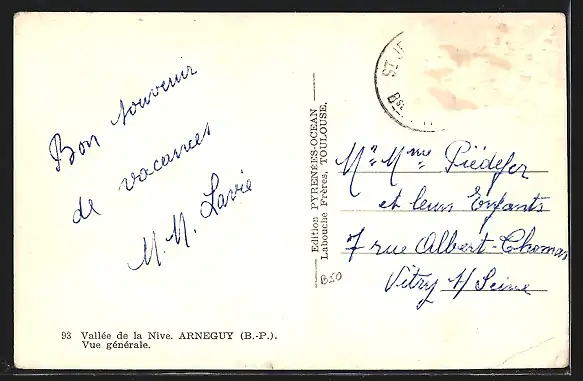 Bon souvenir
de vacances
M. M. Lavie
93 Vallée de la Nive. ARNEGUY (B.-P.).
Vue générale.
Edition PYRENEES-OCEAN
Labouche Frères, TOULOUSE.
B50
ST JE
Bses
Mr Mme Piédefer
et leurs Enfants
7 rue Albert-Thomas
Vitry s/ Seine